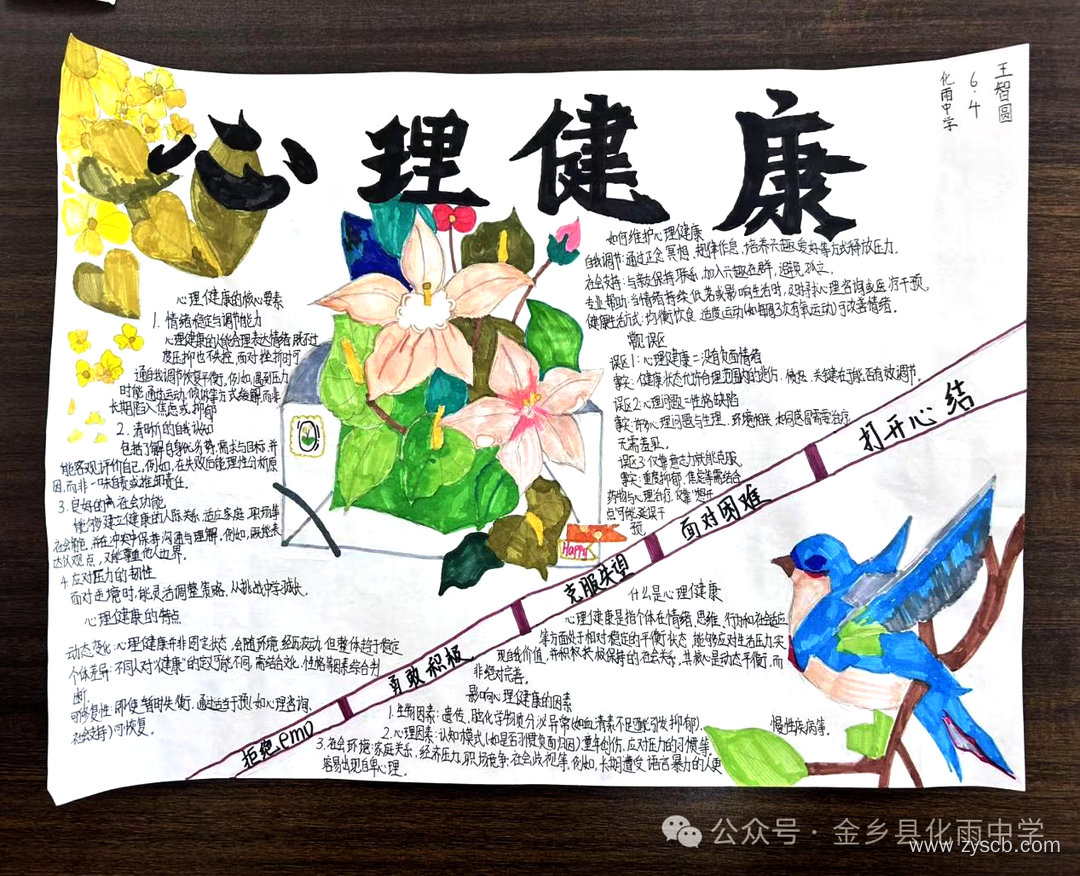 心理健康
王智圆
6.4
化雨中学
心理健康的核心要素
1. 情绪稳定与调节能力
心理健康的人能合理表达情绪,既不过
度压抑也不失控,面对挫折时可
通自我调节恢复平衡,例如,遇到压力
时能通过运动、倾诉等方式缓解,而非
长期陷入焦虑或抑郁
2. 清晰的自我认知
包括了解自身优劣势,需求与目标,并
能客观评价自己,例如,在失败后能理性分析原
因,而非一味自责或推卸责任。
3. 良好的离社会功能
能够建立健康的人际关系,适应家庭、职场等
社会角色,并在冲突中保持沟通与理解,例如,既能表
达仪观点,又能尊重他人边界。
4 应对压力的韧性
面对逆境时,能灵活调整策略,从挑战中学习成长。
心理健康的特点
动态变化:心理健康并非固定状态,会随环境、经历波动,但整体趋于稳定
个体差异:不同人对“健康”的定义可能不同,需结合文化、性格等因素综合判
断,
可修复性:即使暂时失衡,通过适当干预(如心理咨询、
社会支持)可恢复。
如何维护心理健康
自我调节:通过正念冥想、规律作息,培养兴趣爱好等方式释放压力。
社会支持:与亲友保持联系,加入兴趣社群,避免孤立。
专业帮助:当情绪持续低落或影响生活时,及时寻求心理咨询或医疗干预。
健康生活方式:均衡饮食、适度运动(如每周3次有氧运动)可改善情绪。
常见误区
误区1:心理健康=没有负面情绪
事实:健康状态允许合理范围内的悲伤、愤怒,关键在于能否有效调节。
误区2:心理问题=性格缺陷
事实:许多心理问题与生理、环境相关,如同感冒需要治疗
无需羞见。
误区3:仅靠意志力就能克服
事实:重度抑郁、焦虑等需结合
药物与心理治疗,仅靠“想开
点”可能延误干
预,
Happy
拒绝emo
勇敢积极
克服失望
面对困难
打开心结
什么是心理健康
心理健康是指个体在情绪、思维、行为和社会适应
等方面处于相对稳定的平衡状态,能够应对生活压力,实
现自我价值,并积极积极保持的社会关系,其核心是动态平衡,而
非绝对完善。
影响心理健康的因素
1.生物因素:遗传、脑化学物质分泌异常(如血清素不足可能引发抑郁)、
慢性疾病等。
2.心理因素:认知模式(如是否习惯负面归因)、童年创伤、应对压力的习惯等,
3.社会环境:家庭关系、经济压力、职场竞争、社会歧视等,例如,长期遭受语言暴力的人更
容易出现自卑心理。
公众号·金乡县化雨中学
www.zyscb.com